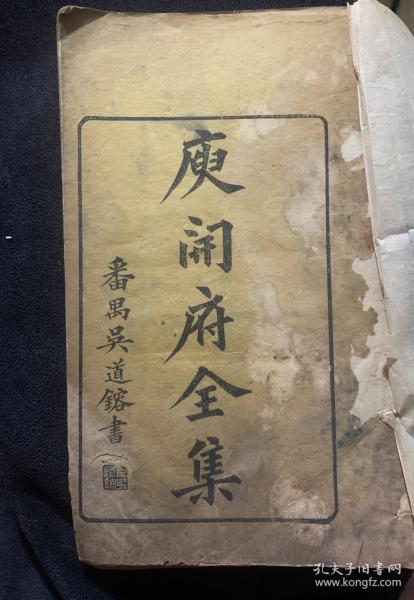 庾開府全集
番禺吳道鎔書
孔夫子旧书网
www.kongfz.com